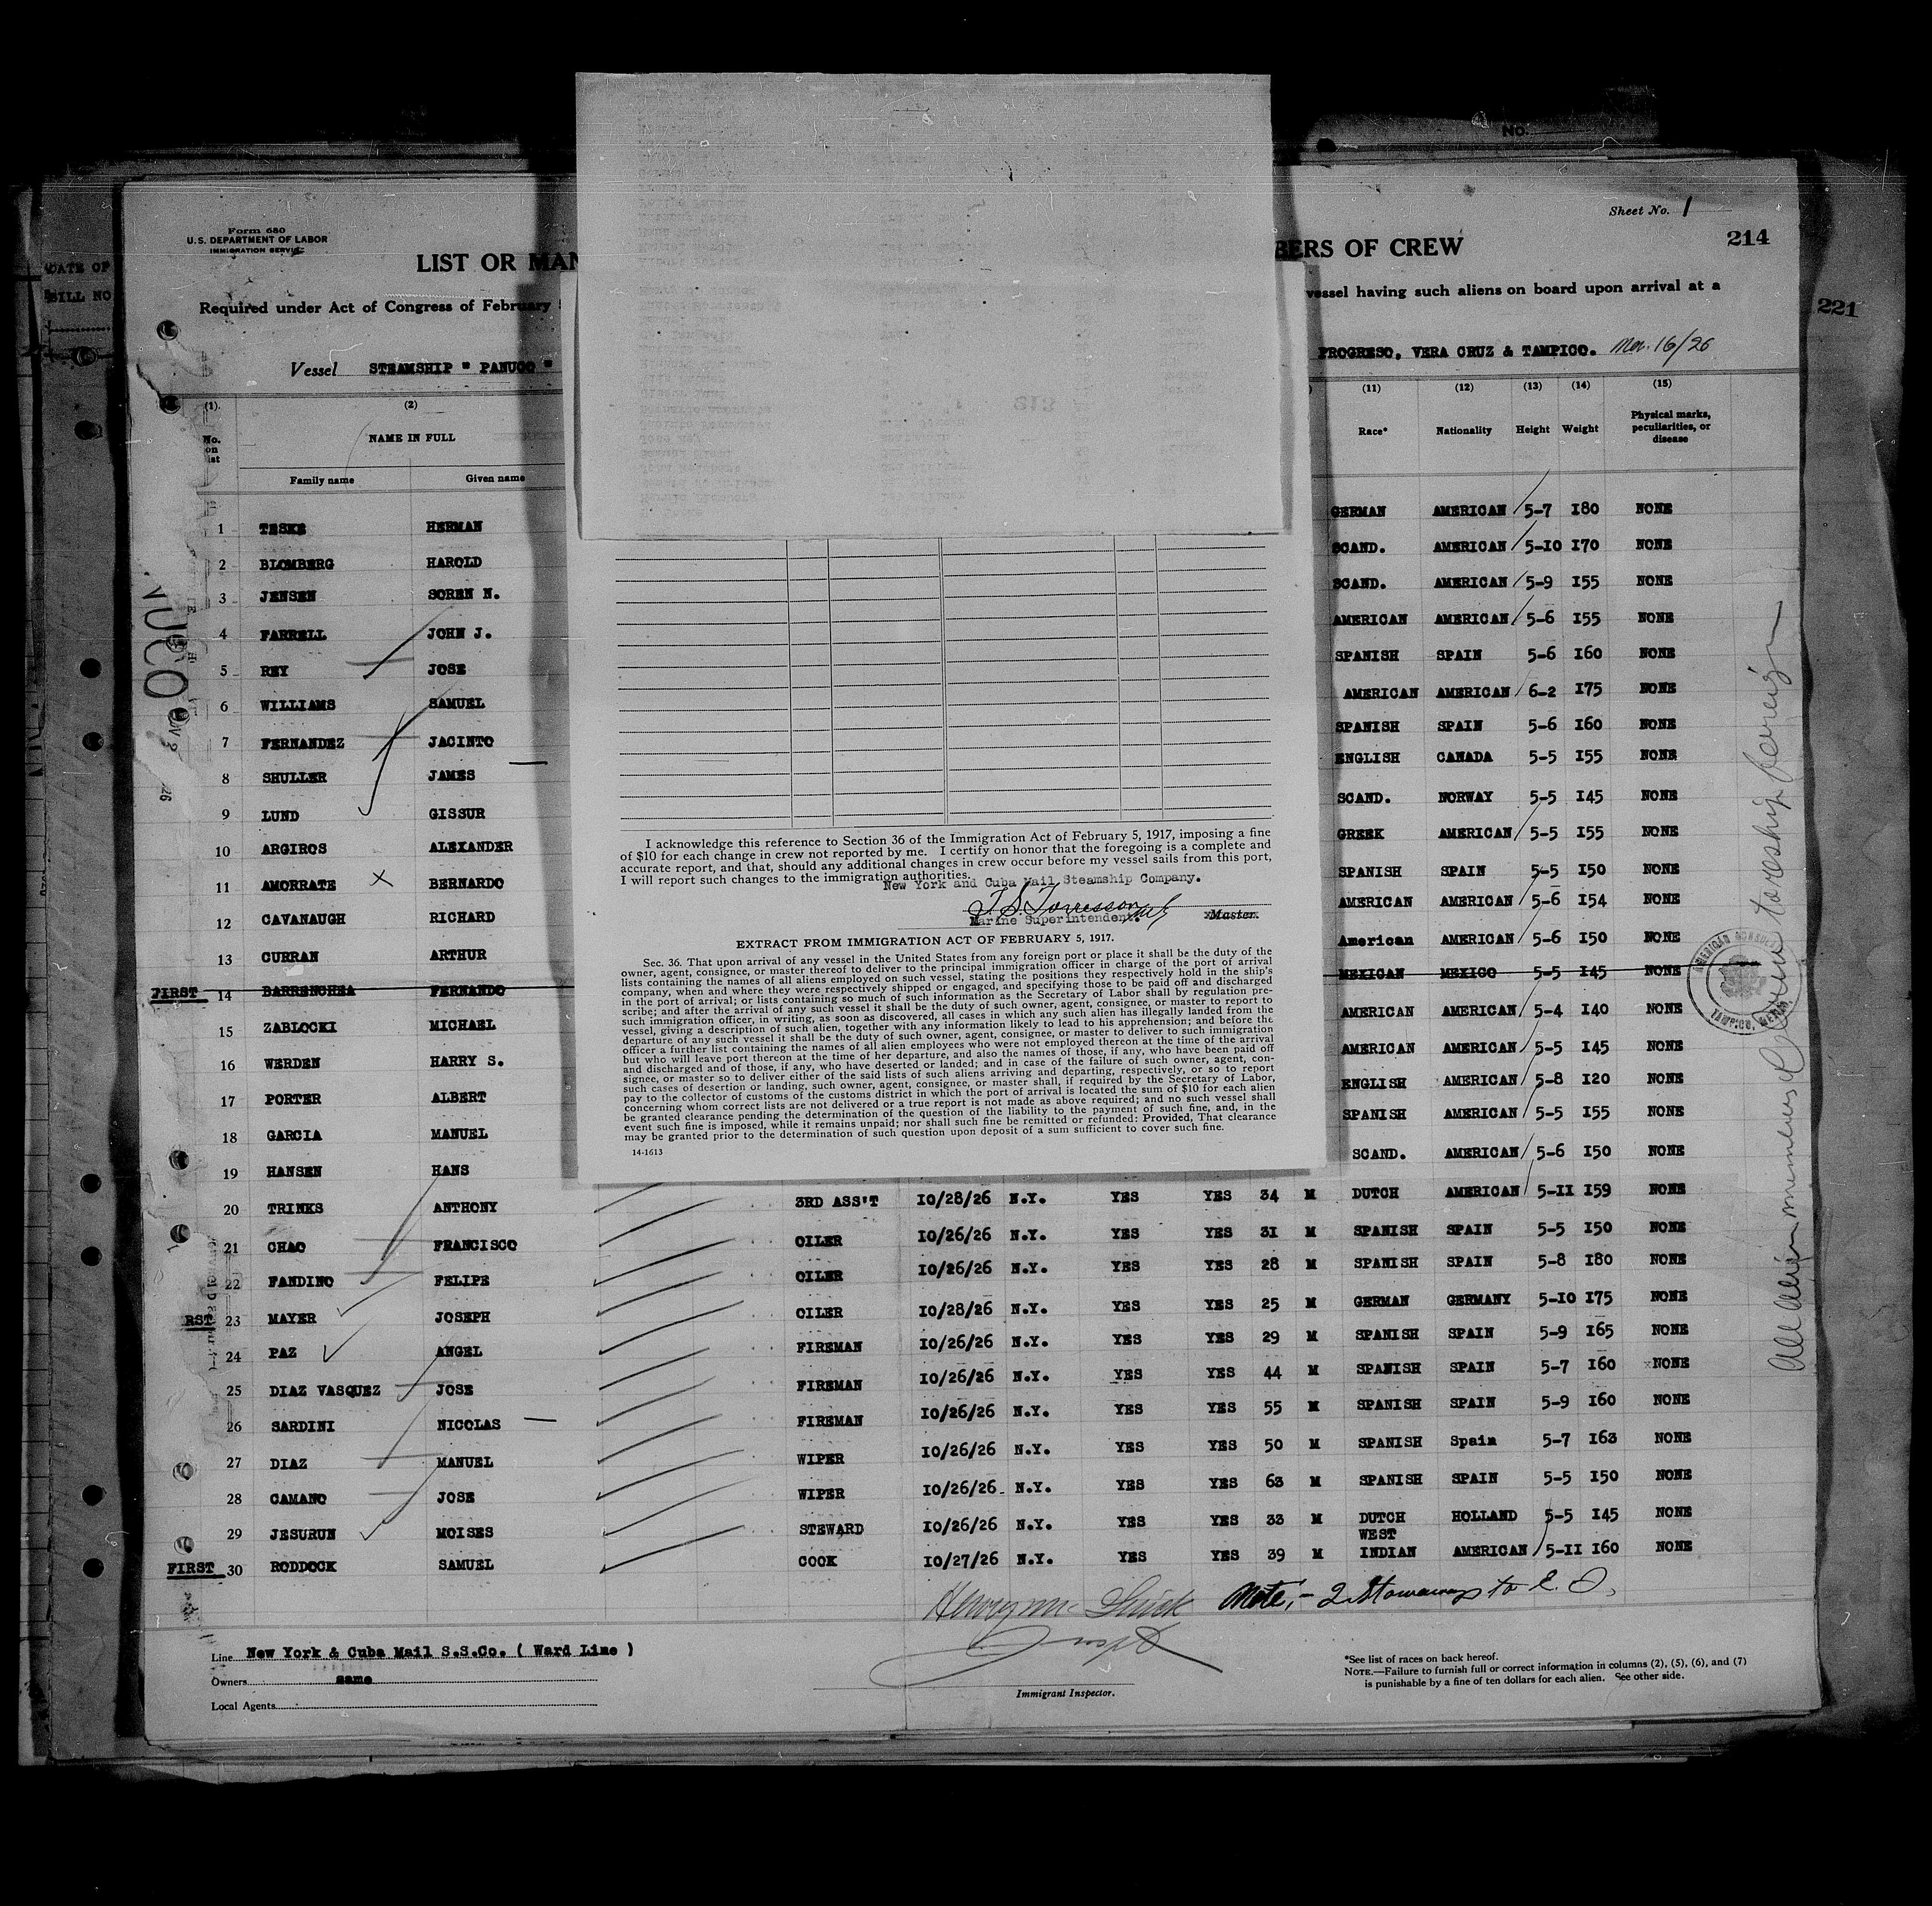 No.
Sheet No. 1
214
221
DATE OF
BILL NO
Form 680
U.S. DEPARTMENT OF LABOR
IMMIGRATION SERVICE
LIST OR MAN
BERS OF CREW
Required under Act of Congress of February
vessel having such aliens on board upon arrival at a
Vessel STEAMSHIP " PANUCO "
PROGRESO, VERA CRUZ & TAMPICO.
(1) (2) (11) (12) (13) (14) (15)
No. on list NAME IN FULL Race* Nationality Height Weight Physical marks, peculiarities, or disease
Family name Given name
1 TESKE HERMAN GERMAN AMERICAN 5-7 180 NONE
2 BLOMBERG HAROLD SCAND. AMERICAN 5-10 170 NONE
3 JENSEN SOREN N. SCAND. AMERICAN 5-9 155 NONE
4 FARRELL JOHN J. AMERICAN AMERICAN 5-6 155 NONE
5 REY JOSE SPANISH SPAIN 5-6 160 NONE
6 WILLIAMS SAMUEL AMERICAN AMERICAN 6-2 175 NONE
7 FERNANDEZ JACINTO SPANISH SPAIN 5-6 160 NONE
8 SHULLER JAMES ENGLISH CANADA 5-5 155 NONE
9 LUND GISSUR SCAND. NORWAY 5-5 145 NONE
10 ARGIROS ALEXANDER GREEK AMERICAN 5-5 155 NONE
11 AMORRATE BERNARDO SPANISH SPAIN 5-5 150 NONE
12 CAVANAUGH RICHARD AMERICAN AMERICAN 5-6 154 NONE
13 CURRAN ARTHUR American AMERICAN 5-6 150 NONE
FIRST 14 BARRENCHEA FERNANDO MEXICAN MEXICO 5-5 145 NONE
15 ZABLOCKI MICHAEL AMERICAN AMERICAN 5-4 140 NONE
16 WERDEN HARRY S. AMERICAN AMERICAN 5-5 145 NONE
17 PORTER ALBERT ENGLISH AMERICAN 5-8 120 NONE
18 GARCIA MANUEL SPANISH AMERICAN 5-5 155 NONE
19 HANSEN HANS SCAND. AMERICAN 5-6 150 NONE
20 TRINKS ANTHONY 3RD ASS'T 10/28/26 N.Y. YES YES 34 M DUTCH AMERICAN 5-11 159 NONE
21 CHAO FRANCISCO OILER 10/26/26 N.Y. YES YES 31 M SPANISH SPAIN 5-5 150 NONE
22 FANDINO FELIPE OILER 10/26/26 N.Y. YES YES 28 M SPANISH SPAIN 5-8 180 NONE
RST 23 MAYER JOSEPH OILER 10/28/26 N.Y. YES YES 25 M GERMAN GERMANY 5-10 175 NONE
24 PAZ ANGEL FIREMAN 10/26/26 N.Y. YES YES 29 M SPANISH SPAIN 5-9 165 NONE
25 DIAZ VASQUEZ JOSE FIREMAN 10/26/26 N.Y. YES YES 44 M SPANISH SPAIN 5-7 160 NONE
26 SARDINI NICOLAS FIREMAN 10/26/26 N.Y. YES YES 55 M SPANISH SPAIN 5-9 160 NONE
27 DIAZ MANUEL WIPER 10/26/26 N.Y. YES YES 50 M SPANISH Spain 5-7 163 NONE
28 CAMANO JOSE WIPER 10/26/26 N.Y. YES YES 63 M SPANISH SPAIN 5-5 150 NONE
29 JESURUN MOISES STEWARD 10/26/26 N.Y. YES YES 33 M DUTCH HOLLAND 5-5 145 NONE
FIRST 30 RODDOCK SAMUEL COOK 10/27/26 N.Y. YES YES 39 M WEST INDIAN AMERICAN 5-11 160 NONE
I acknowledge this reference to Section 36 of the Immigration Act of February 5, 1917, imposing a fine
of $10 for each change in crew not reported by me. I certify on honor that the foregoing is a complete and
accurate report, and that, should any additional changes in crew occur before my vessel sails from this port,
I will report such changes to the immigration authorities.
New York and Cuba Mail Steamship Company.
T. S. Torresson
Marine Superintendent. Master.
EXTRACT FROM IMMIGRATION ACT OF FEBRUARY 5, 1917.
Sec. 36. That upon arrival of any vessel in the United States from any foreign port or place it shall be the duty of the
owner, agent, consignee, or master thereof to deliver to the principal immigration officer in charge of the port of arrival
lists containing the names of all aliens employed on such vessel, stating the positions they respectively hold in the ship's
company, when and where they were respectively shipped or engaged, and specifying those to be paid off and discharged
in the port of arrival; or lists containing so much of such information as the Secretary of Labor shall by regulation pre-
scribe; and after the arrival of any such vessel it shall be the duty of such owner, agent, consignee, or master to report to
such immigration officer, in writing, as soon as discovered, all cases in which any such alien has illegally landed from the
vessel, giving a description of such alien, together with any information likely to lead to his apprehension; and before the
departure of any such vessel it shall be the duty of such owner, agent, consignee, or master to deliver to such immigration
officer a further list containing the names of all alien employees who were not employed thereon at the time of the arrival
but who will leave port thereon at the time of her departure, and also the names of those, if any, who have been paid off
and discharged and of those, if any, who have deserted or landed; and in case of the failure of such owner, agent, con-
signee, or master so to deliver either of the said lists of such aliens arriving and departing, respectively, or so to report
such cases of desertion or landing, such owner, agent, consignee, or master shall, if required by the Secretary of Labor,
pay to the collector of customs of the customs district in which the port of arrival is located the sum of $10 for each alien
concerning whom correct lists are not delivered or a true report is not made as above required; and no such vessel shall
be granted clearance pending the determination of the question of the liability to the payment of such fine, and, in the
event such fine is imposed, while it remains unpaid; nor shall such fine be remitted or refunded: Provided, That clearance
may be granted prior to the determination of such question upon deposit of a sum sufficient to cover such fine.
14-1613
AMERICAN CONSULATE
TAMPICO, MEXICO
Note:- 2 Stowaways to E. I.
Line New York & Cuba Mail S.S.Co. ( Ward Line )
Owners same
Local Agents
Immigrant Inspector.
*See list of races on back hereof.
NOTE.—Failure to furnish full or correct information in columns (2), (5), (6), and (7)
is punishable by a fine of ten dollars for each alien. See other side.